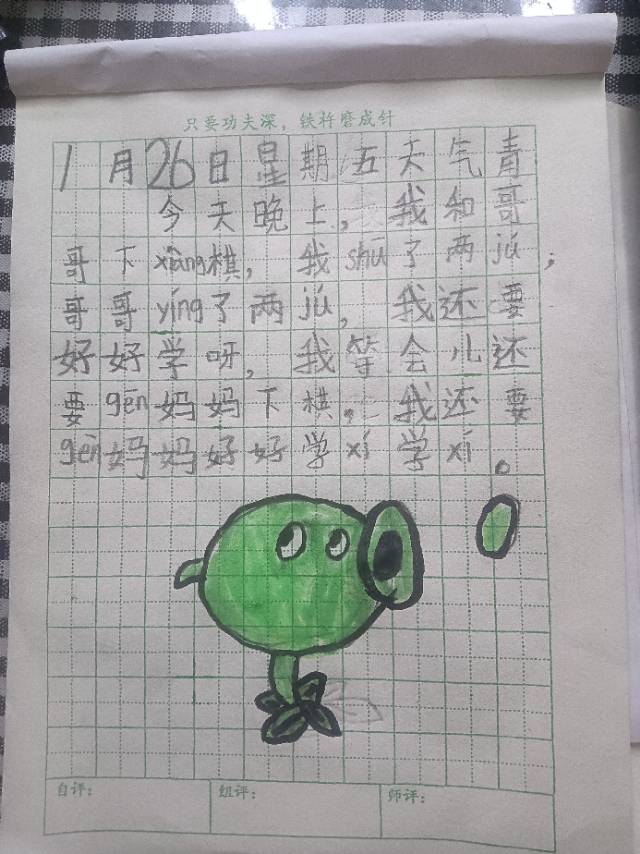 只要功夫深，铁杵磨成针
1月26日星期五天气青
今天晚上，我和哥
哥下xiàng棋，我shū了两jú；
哥哥yíng了两jú，我还要
好好学呀，我等会儿还
要gēn妈妈下棋。我还要
gēn妈妈好好学xí学xí。
自评： 组评： 师评：